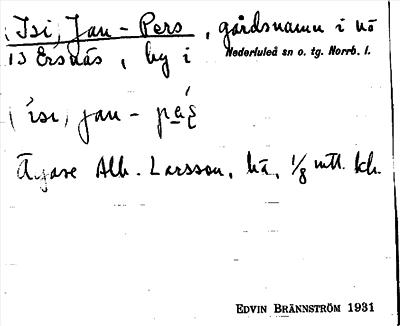 (Isi) Jan-Pers, gårdsnamn i nö
13 Ersnäs, by i Nederluleå sn o. tg. Norrb. l.
(ísi) jan-
Ägare Alb. Larsson, hä, 1/8 mtl. kh.
EDVIN BRÄNNSTRÖM 1931